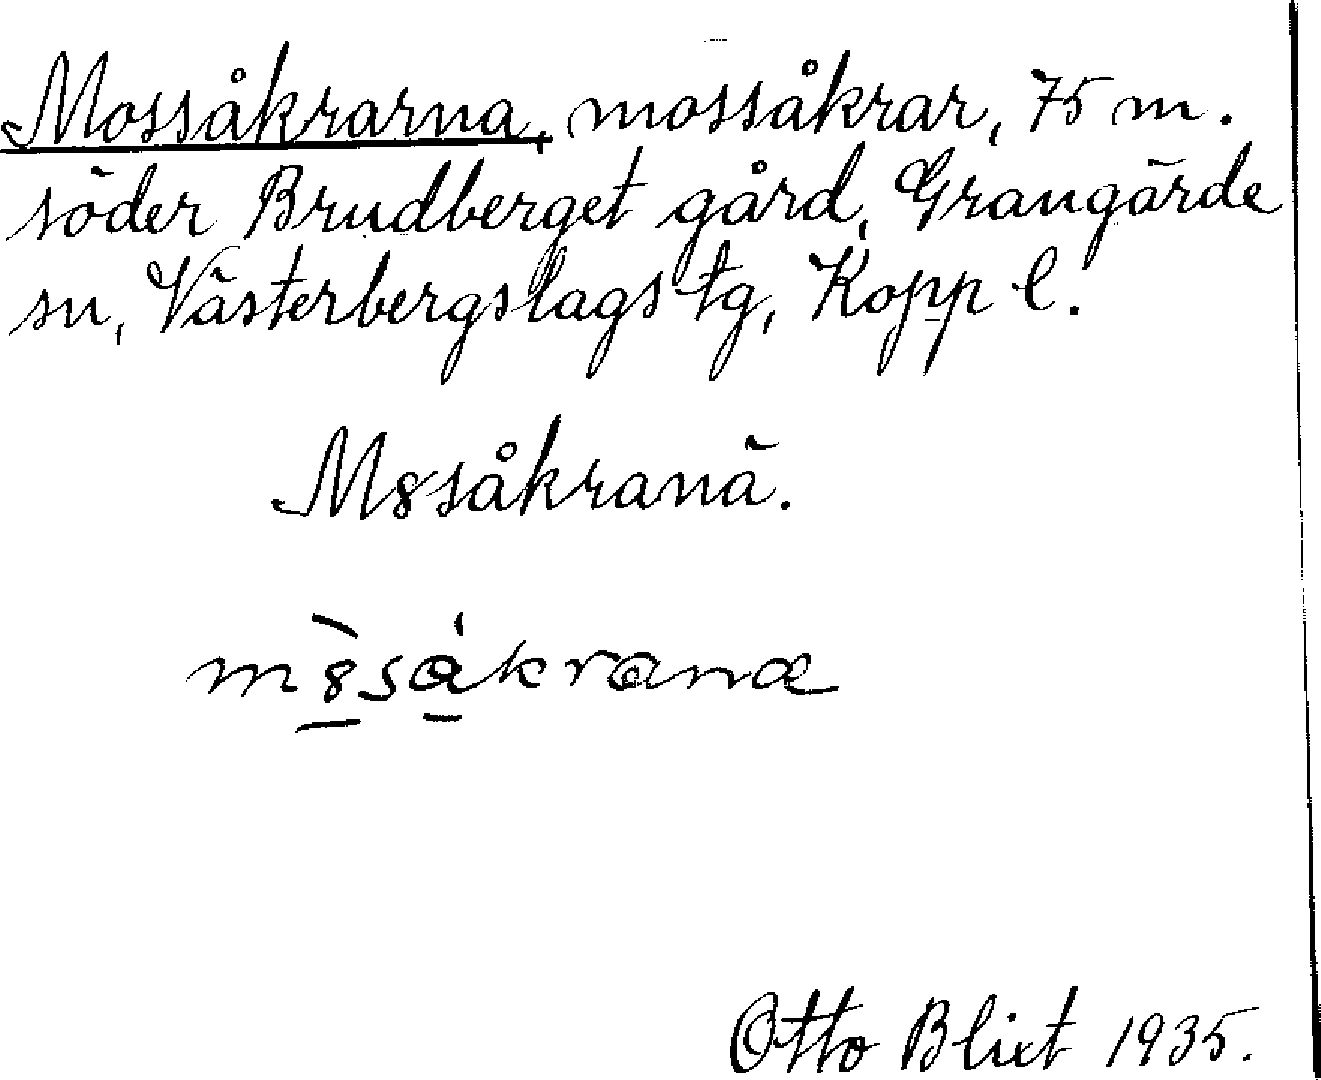 Mossåkrarna, mossåkrar, 75 m.
söder Brudberget gård, Grangärde
sn, Västerbergslags tg, Kopp l.
M8såkranä.
m8̀såkranæ
Otto Blixt 1935.